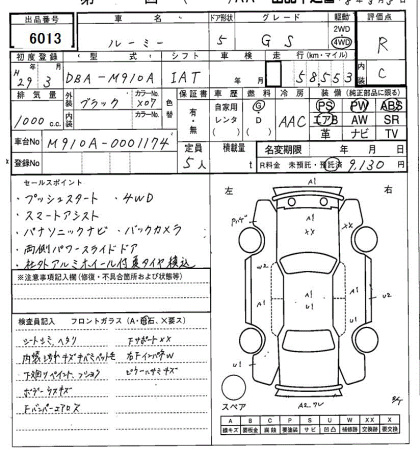 出品番号 車名 ドア形状 グレード 駆動 評価点
6013 ルーミー 5 GS 2WD 4WD R
初度登録 型式 シフト 車検 走行(km・マイル) C
H29 3 DBA-M910A IAT 年 月 58,553
排気量 外装 ブラック カラーNo. X07 色替 保証書 車歴 燃料 冷房 装備 (純正部品に限る)
1000 c.c. 内装 カラーNo. 有・無 自家用 レンタ G D AAC PS PW ABS
エアB AW SR
革 ナビ TV
車台No M910A-0001174
定員 積載量 名変期限 年 月 日
登録No 5人 t R料金 未預託・預託済 9,130 円
セールスポイント
・プッシュスタート ・4WD
・スマートアシスト
・パナソニックナビ ・バックカメラ
・両側パワースライドドア
・社外アルミホイール付夏タイヤ積込
※注意事項記入欄(修復・不具合箇所および状態)
検査員記入 フロントガラス (A・飛石、X要ス)
シートシミ、ヘタリ FサポートXX
右FインパネW
下廻りペイント、
ボデーラスキズ
Fバンパーエアロス
左 右
A1
XX
W2
A1 A1 A1 U2
U1 U1
A1
スペア
A B C P S U W X XX
線キズ 要板金 腐蝕 要塗装 サビ 凹凸 補修跡 要交換 交換跡